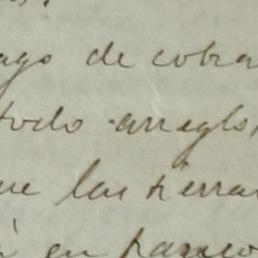 ago de cobra
todo arreglo
ue las tierra
en